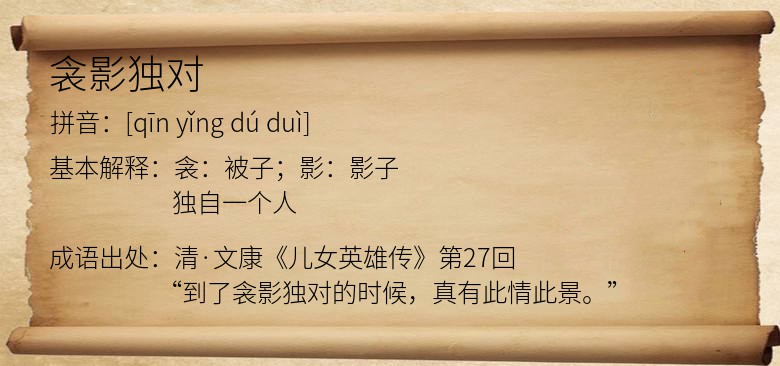 衾影独对
拼音：[qīn yǐng dú duì]
基本解释：衾：被子；影：影子
独自一个人
成语出处：清·文康《儿女英雄传》第27回
“到了衾影独对的时候，真有此情此景。”